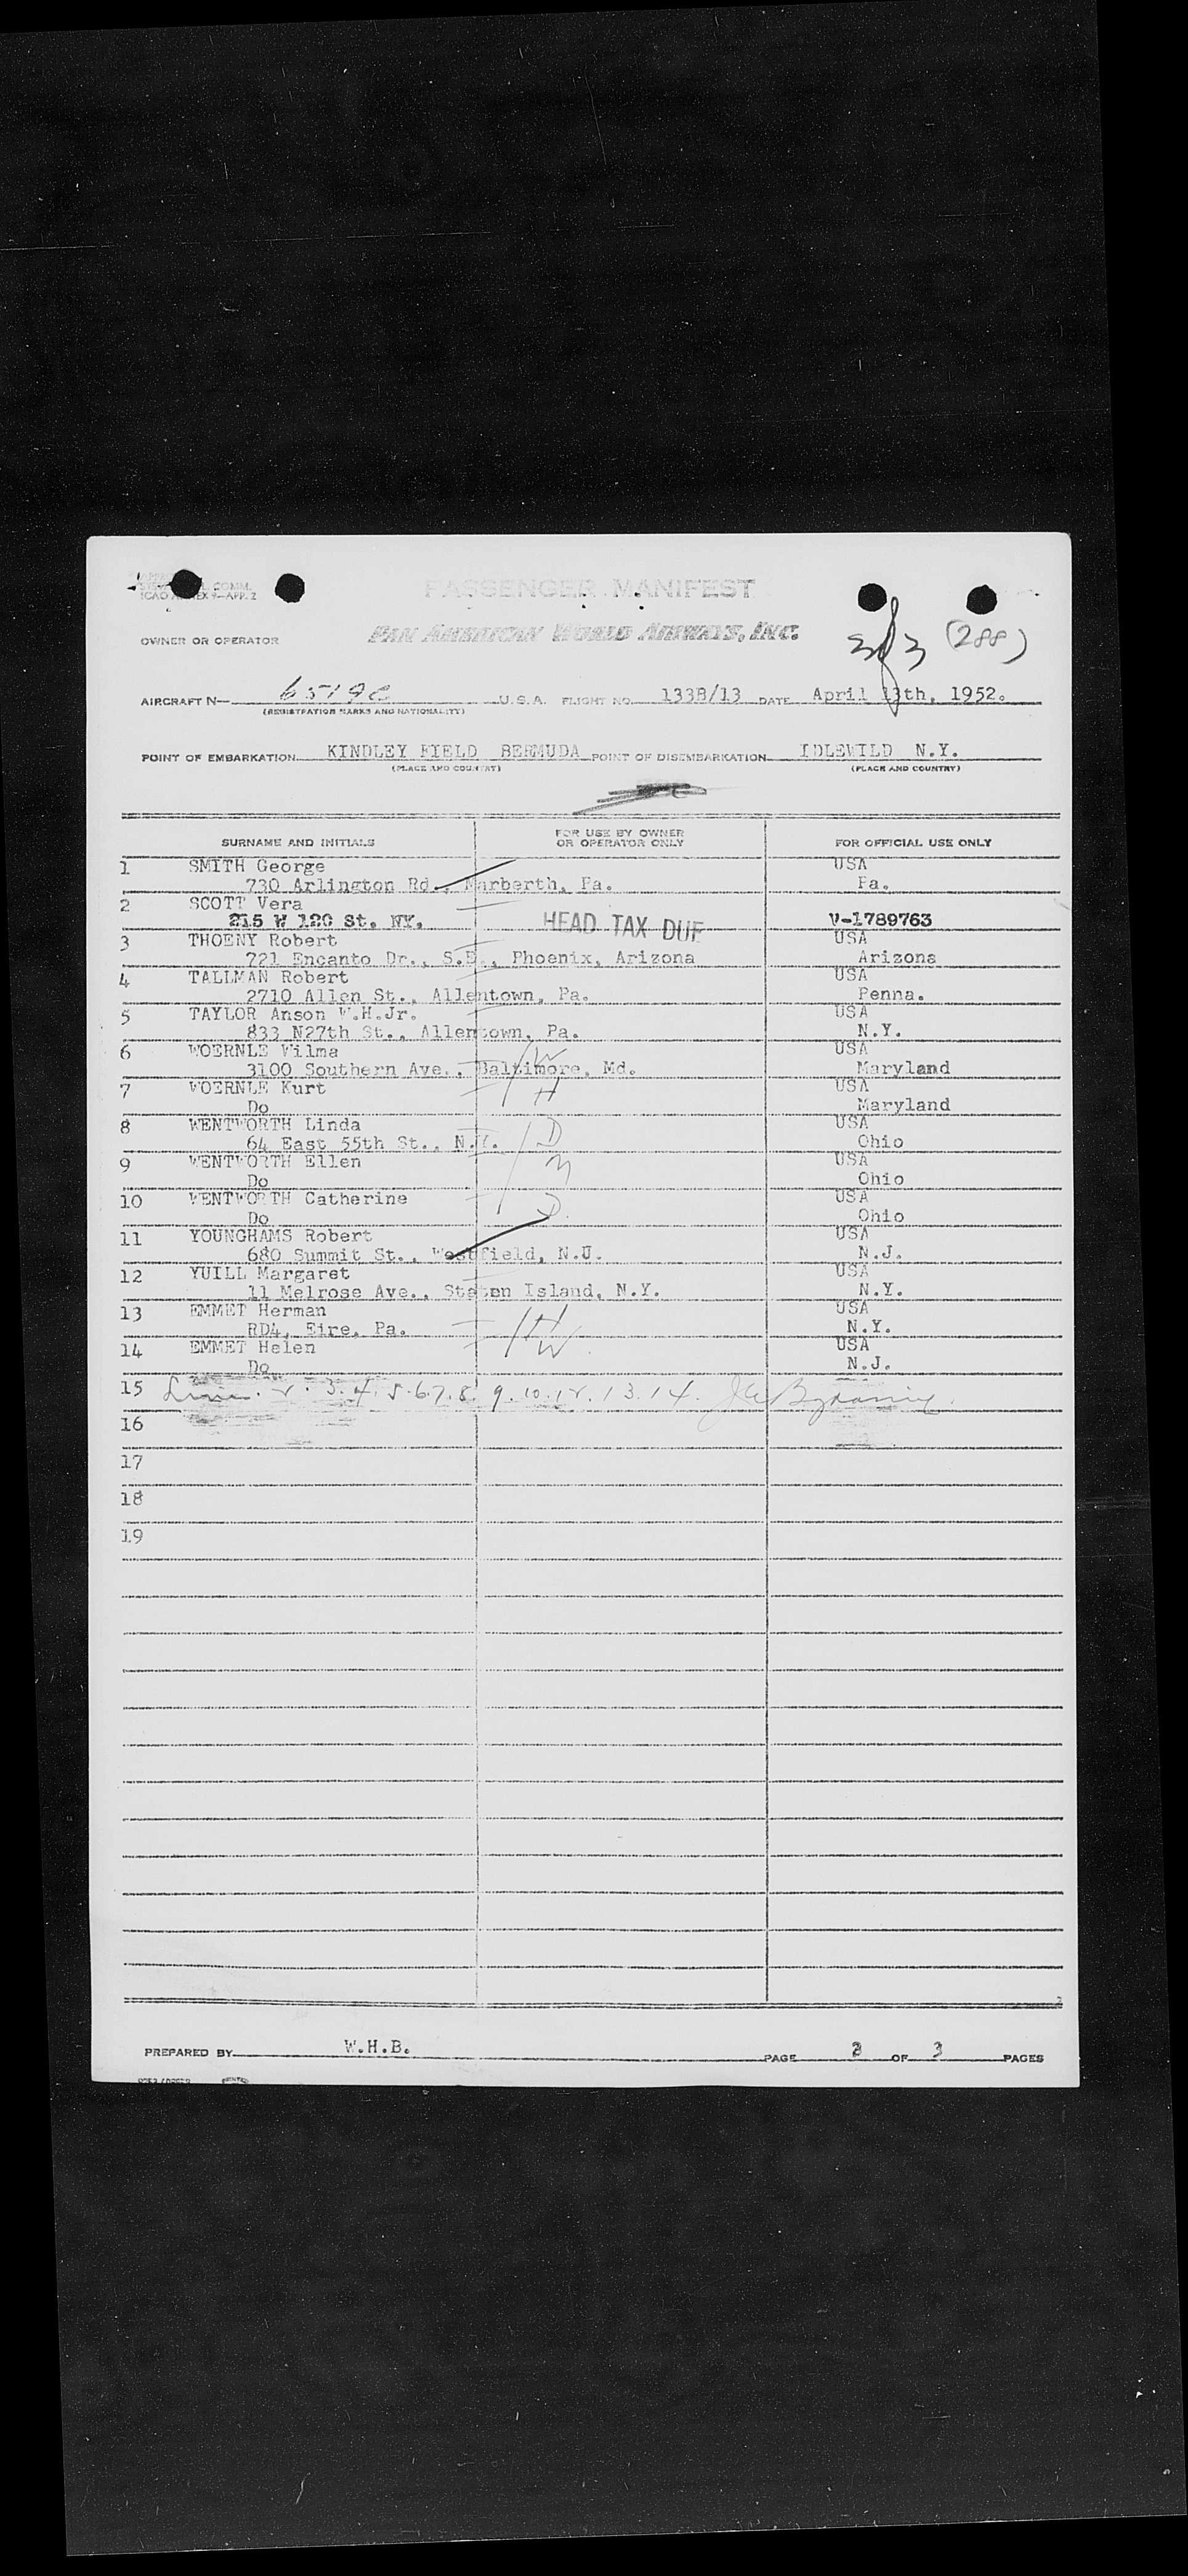 COMM.
ICAO ANNEX 9—APP. 2
PASSENGER MANIFEST
OWNER OR OPERATOR
PAN AMERICAN WORLD AIRWAYS, INC.
3 of 3 (288)
AIRCRAFT N— 6519C U.S.A. FLIGHT NO. 133B/13 DATE April 13th, 1952.
(REGISTRATION MARKS AND NATIONALITY)
POINT OF EMBARKATION KINDLEY FIELD BERMUDA POINT OF DISEMBARKATION IDLEWILD N.Y.
(PLACE AND COUNTRY) (PLACE AND COUNTRY)
SURNAME AND INITIALS FOR USE BY OWNER OR OPERATOR ONLY FOR OFFICIAL USE ONLY
1 SMITH George USA
730 Arlington Rd., Narberth, Pa. Pa.
2 SCOTT Vera
215 W 120 St. NY. HEAD TAX DUE V-1789763
3 THOENY Robert USA
721 Encanto Dr., S.E., Phoenix, Arizona Arizona
4 TALLMAN Robert USA
2710 Allen St., Allentown, Pa. Penna.
5 TAYLOR Anson W.H.Jr. USA
833 N27th St., Allentown, Pa. N.Y.
6 WOERNLE Wilma W USA
3100 Southern Ave., Baltimore, Md. Maryland
7 WOERNLE Kurt H USA
Do Maryland
8 WENTWORTH Linda D USA
64 East 55th St., N.Y. Ohio
9 WENTWORTH Ellen M USA
Do Ohio
10 WENTWORTH Catherine D USA
Do Ohio
11 YOUNGHAMS Robert USA
680 Summit St., Westfield, N.J. N.J.
12 YUILL Margaret USA
11 Melrose Ave., Staten Island, N.Y. N.Y.
13 EMMET Herman H USA
RD4, Eire, Pa. N.Y.
14 EMMET Helen W USA
Do N.J.
15 2. 3. 4. 5. 6. 7. 8. 9. 10. 12. 13. 14.
16
17
18
19
PREPARED BY W.H.B. PAGE 3 OF 3 PAGES